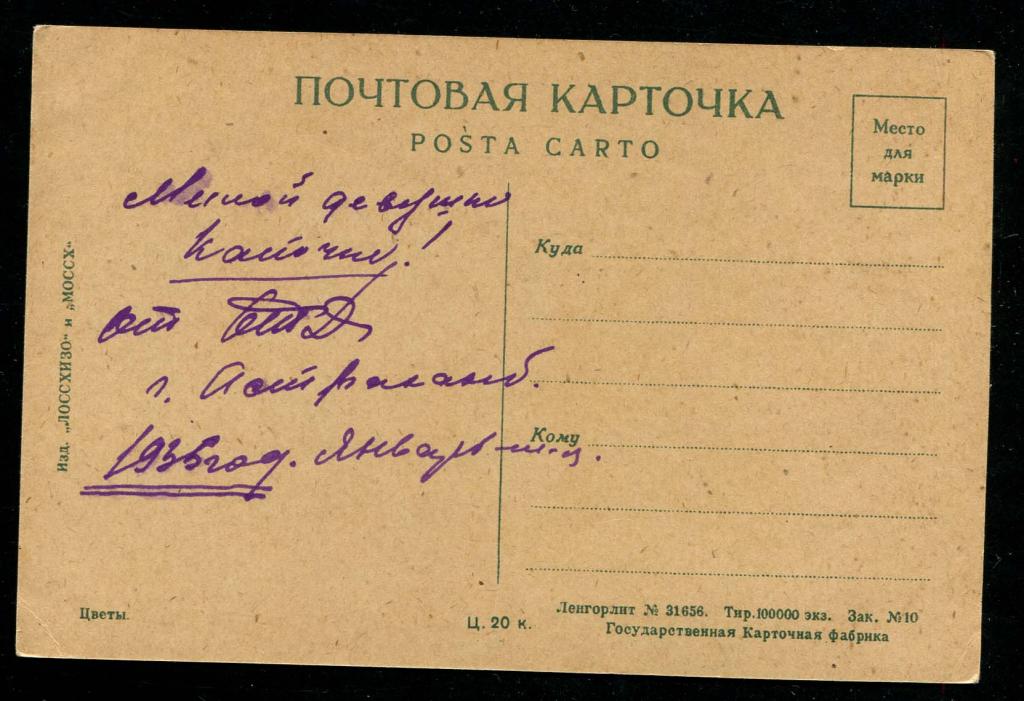 ПОЧТОВАЯ КАРТОЧКА
POŜTA CARTO
Место
для
марки
Милой девушке
Капочке!
от
г. Астрахань.
1936 год. Январь м-ц.
Куда
Кому
Изд. „ЛОССХИЗО" и „МОССХ"
Цветы.
Ц. 20 к.
Ленгорлит № 31656. Тир. 100000 экз. Зак. №10
Государственная Карточная фабрика